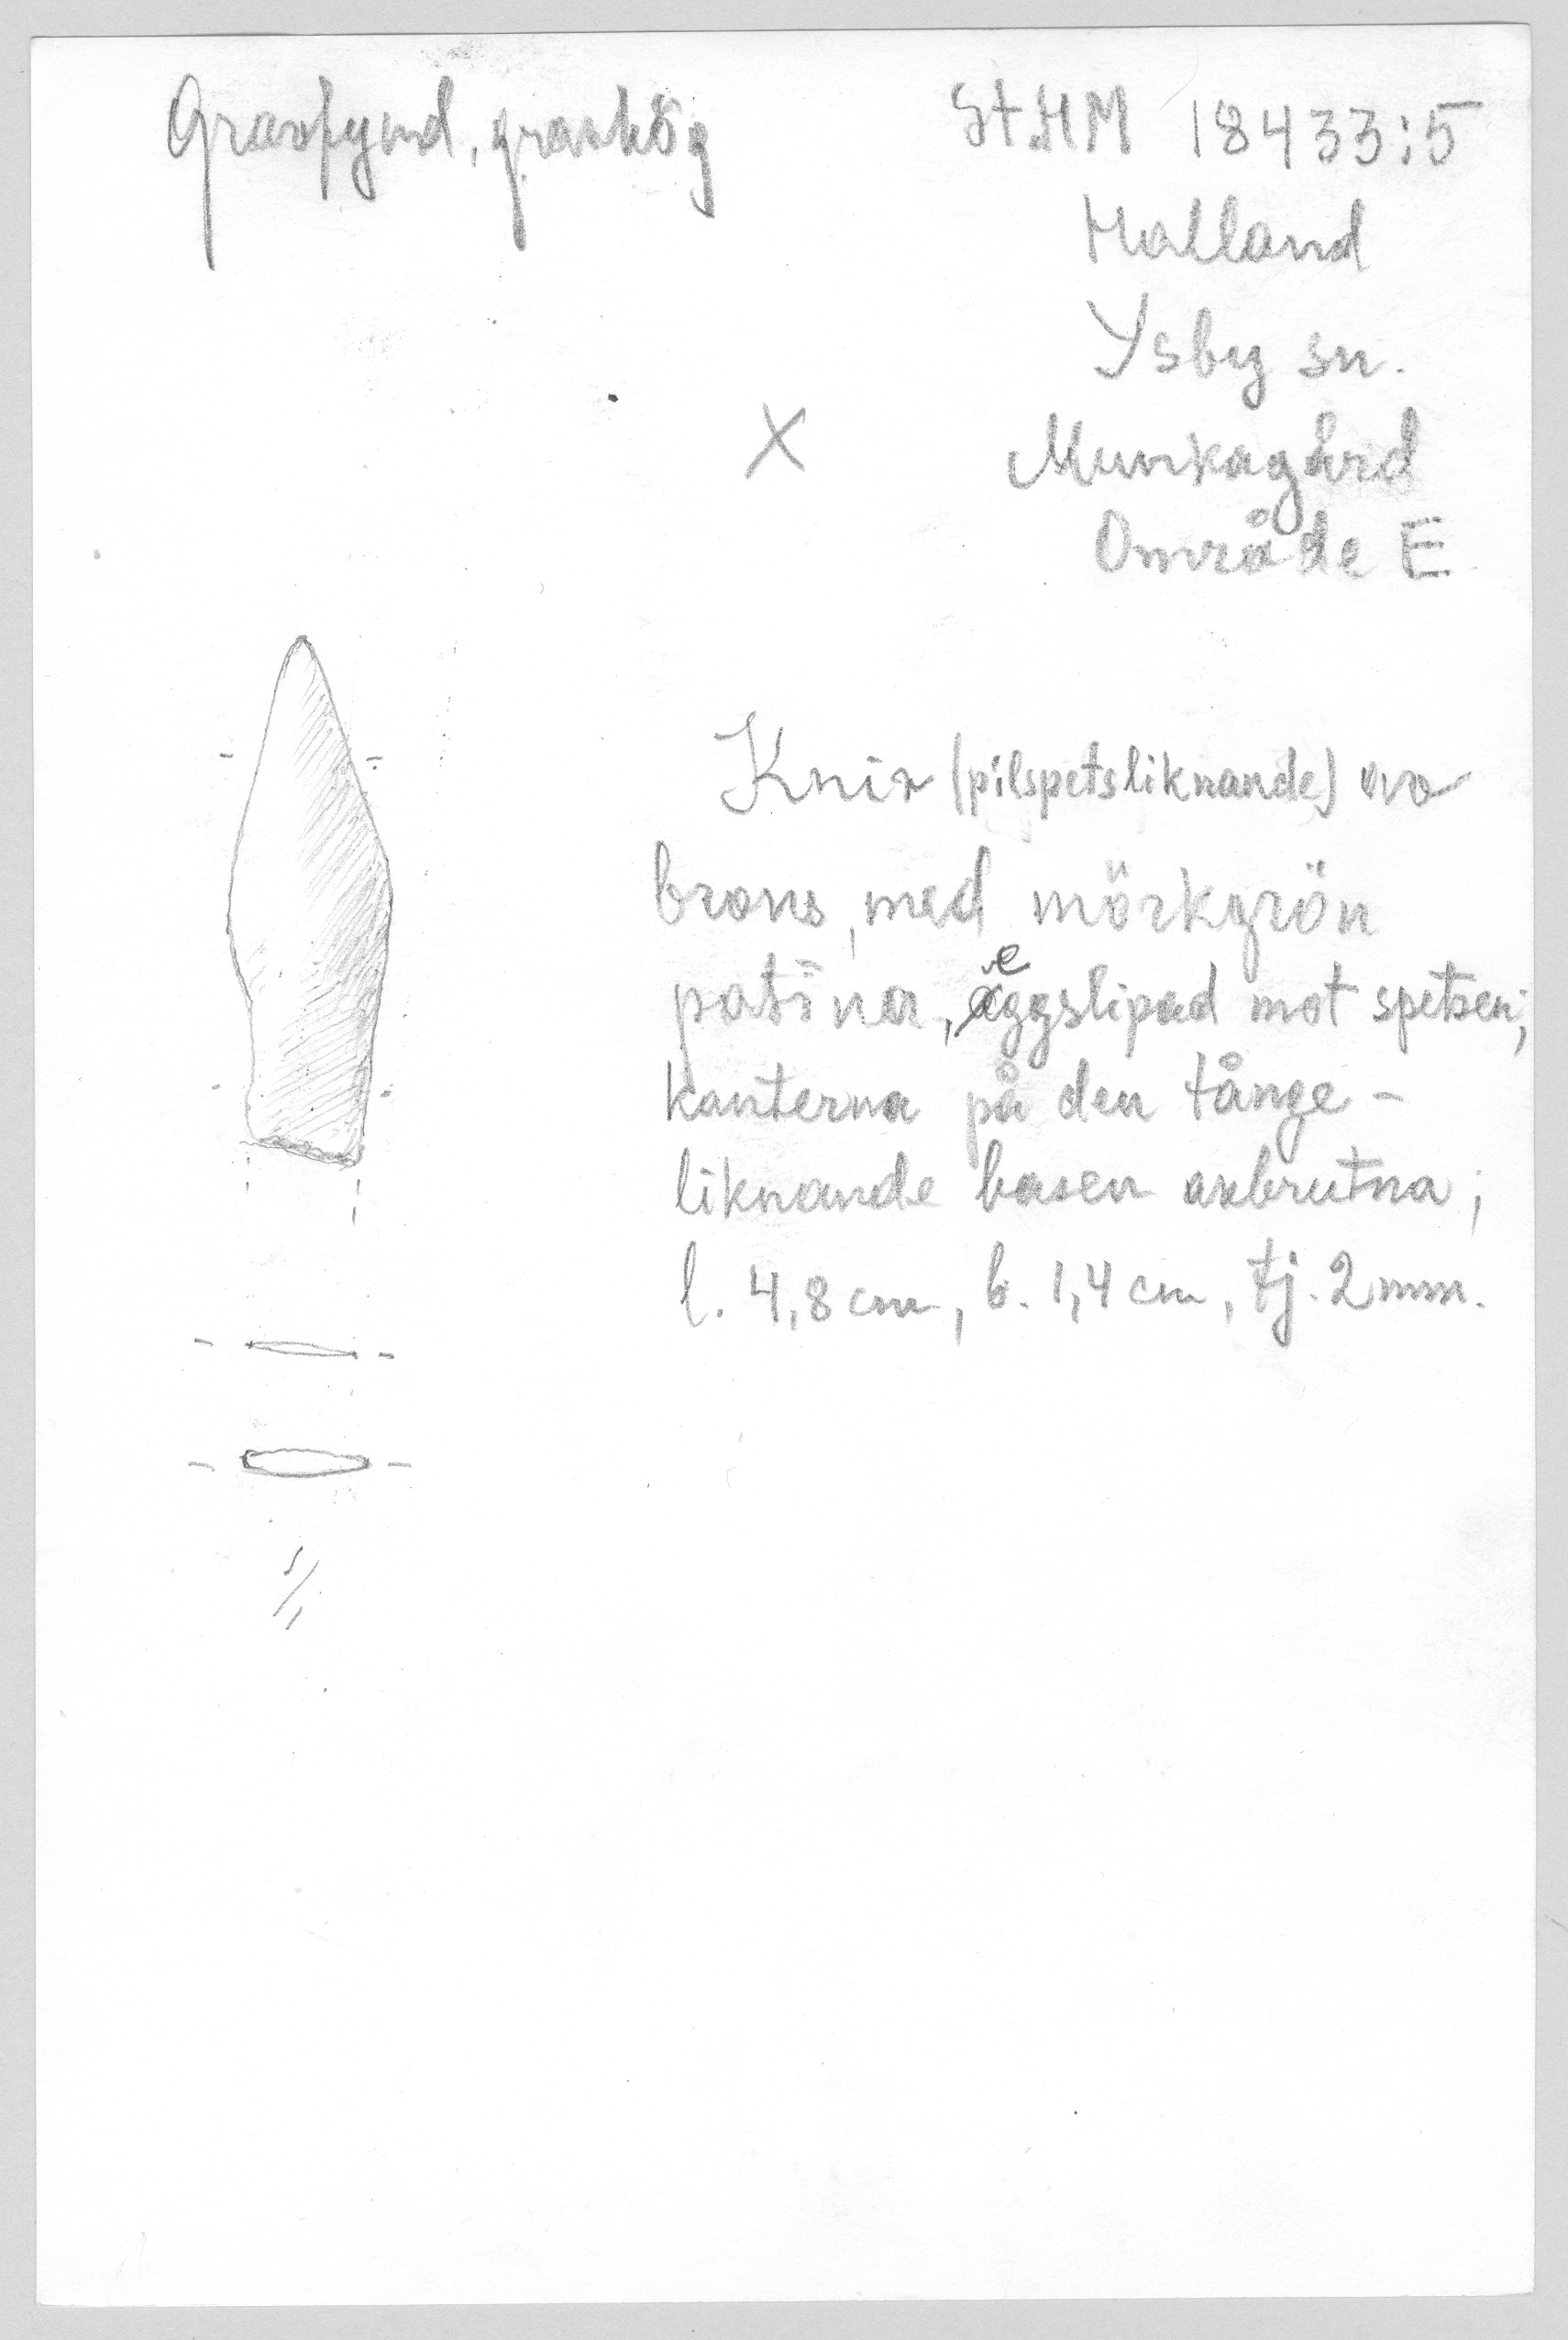 Gravfynd, gravhög
St.HM 18433:5
Halland
Ysby sn.
Munkagård
Område E
X
Kniv (pilspetsliknande) av
brons, med mörkgrön
patina, eggslipad mot spetsen;
kanterna på den tånge-
liknande basen avbrutna;
l. 4,8 cm, b. 1,4 cm, tj. 2 mm.
1/1